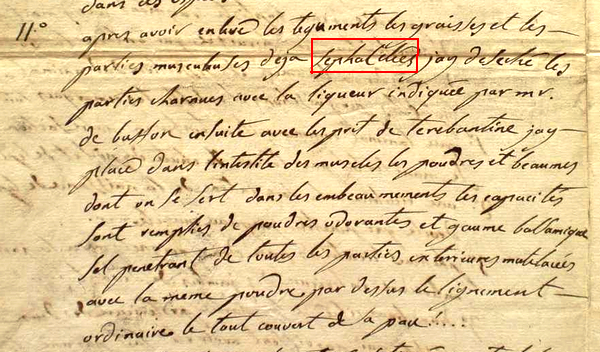 11°
apres avoir enlevé les teguments les graisses et les
parties musculeuses deja sephacelées jay deseché les
parties charnues avec la liqueur indiquée par mr.
de buffon ensuite avec lesprit de terebantine jay
placé dans l'intestite des muscles les poudres et beaumes
dont on se sert dans les embeaumements les capacités
sont remplies de poudres odorantes et gaume balsamique
sel penetrant de toutes les parties exterieures matelacées
avec la meme poudre, par dessus le lignement
ordinaire le tout couvert de sa pau!...